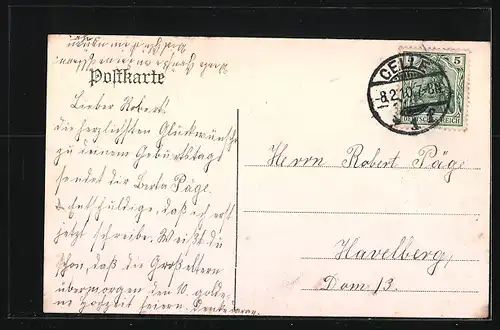 Postkarte
Lieber Robert!
die herzlichsten Glückwünsche
zu deinem Geburtstage
sendet dir Berta Päge.
Entschuldige, daß ich erst
jetzt schreibe. Weißt du
schon, daß die Großeltern
übermorgen den 10. golde-
ne Hochzeit feiern. Denke daran.
CELLE
8.2.10. 7-8N
5
DEUTSCHES REICH
Herrn Robert Päge
Havelberg,
Dom 13.